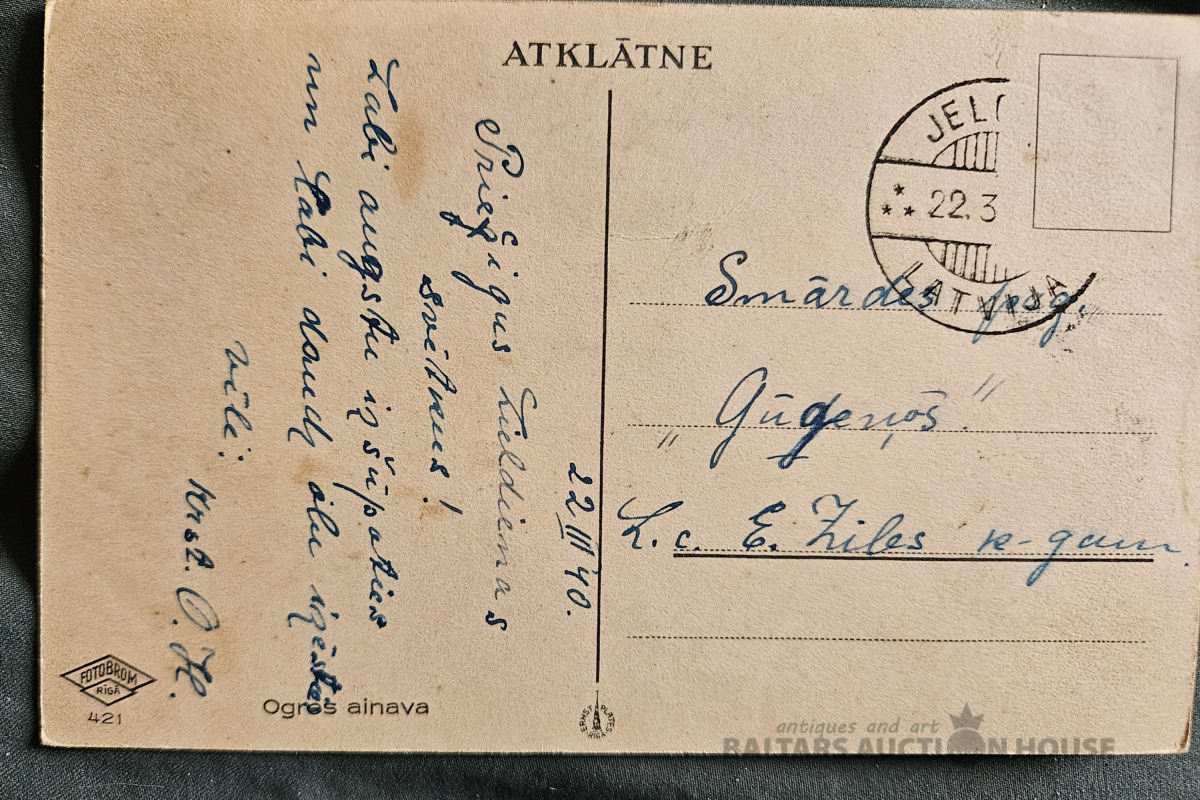 ATKLĀTNE
22/III 40.
Priecīgus Lieldienas
svētkus!
Labi augstu izšūpoties
un labi daudz olu izēst
vēlē:
Krst. O. K.
JEL
22.3
LATVIJA
Smārdes pag.
"Gūgeņōs."
L. c. E. Ziles k-gam.
FOTOBROM
RĪGĀ
421
Ogres ainava
ERNST PLATES RĪGA
antiques and art
BALTARS AUCTION HOUSE